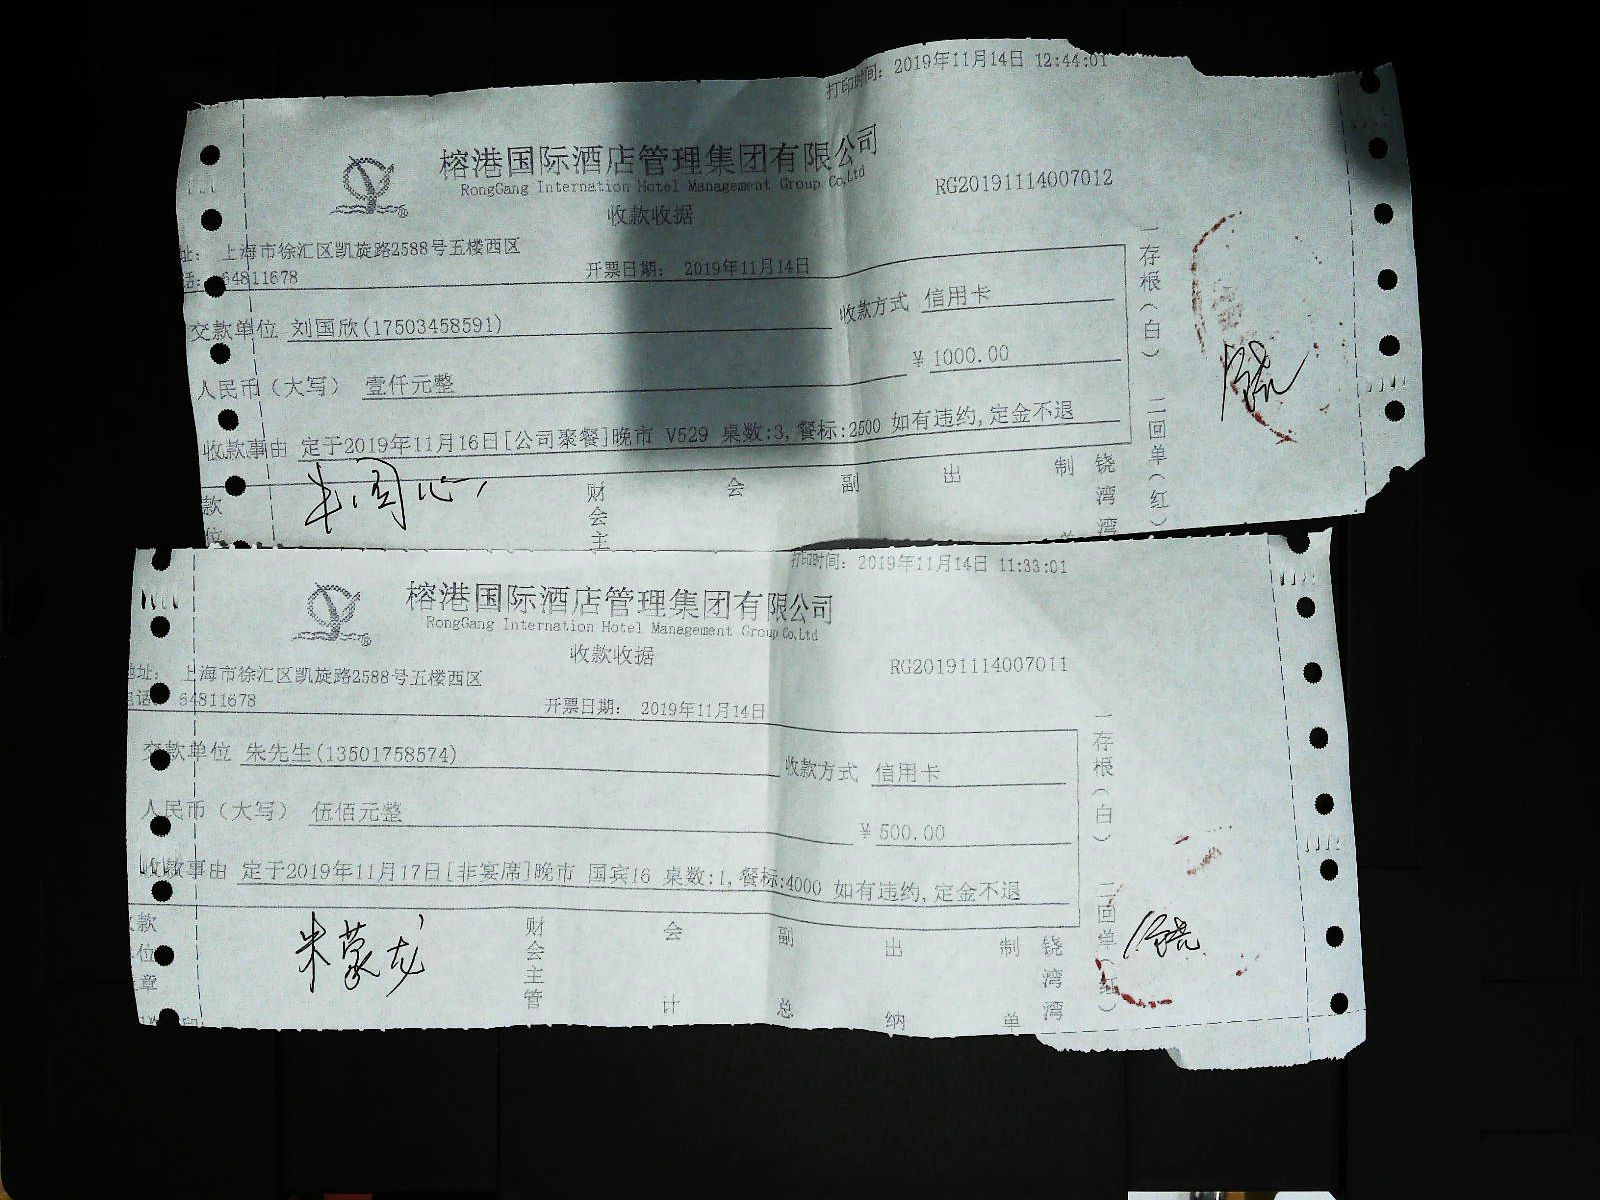 打印时间：2019年11月14日 12:44:01
榕港国际酒店管理集团有限公司
RongGang Internation Hotel Management Group Co,Ltd
收款收据
RG20191114007012
址： 上海市徐汇区凯旋路2588号五楼西区
话： 64811678
开票日期： 2019年11月14日
交款单位 刘国欣(17503458591)
收款方式 信用卡
人民币（大写） 壹仟元整
￥1000.00
收款事由 定于2019年11月16日[公司聚餐]晚市 V529 桌数:3,餐标:2500 如有违约,定金不退
一存根（白） 二回单（红）
款位
财会主
会
副
出
制单
饶湾湾
打印时间：2019年11月14日 11:33:01
榕港国际酒店管理集团有限公司
RongGang Internation Hotel Management Group Co,Ltd
收款收据
RG20191114007011
地址： 上海市徐汇区凯旋路2588号五楼西区
电话： 64811678
开票日期： 2019年11月14日
交款单位 朱先生(13501758574)
收款方式 信用卡
人民币（大写） 伍佰元整
￥500.00
收款事由 定于2019年11月17日[非宴席]晚市 国宾16 桌数:1,餐标:4000 如有违约,定金不退
一存根（白） 二回单（红）
款位章
朱蒙龙
财会主管
会计
副总
出纳
制单
饶湾湾